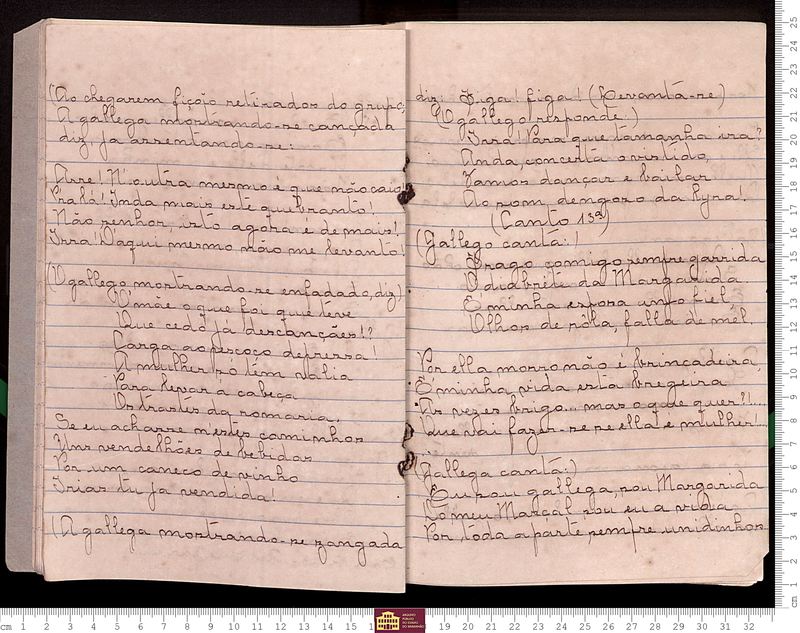 (Ao chegarem ficão retirados do grupo;
A gallega mostrando-se cançada
diz, ja assentando-se:
Arre! N'outra mesmo é que não caio!
Prahá! Inda mais este quebranto!
Não senhor, isto agora é de mais!
Irra! D'aqui mesmo não me levanto!
(O gallego, mostrando-se enfadado, diz)
O' mãe o que foi que teve
Que cedo ja descançães!?
Carga ao pescoço depressa!
A mulher só têm valia
Para levar á cabeça
Os trastes da romaria.
Se eu achasse n'estes caminhos
Uns vendelhões de bebidas
Por um caneco de vinho
Irias tu ja vendida!
(A gallega mostrando-se zangada
diz: Figa! figa! (Levanta-se)
(O gallego responde:)
Irra! Para que tamanha ira?
Anda, concerta o vistido,
Vamos dançar e bailar
Ao som, dengoso da lyra!
(Canto 13º)
(Gallego canta:)
Trago comigo sempre garrida
O diabrete da Margarida
E' minha esposa anjo fiel
Olhos de rôla, falla de mél.
Por ella morro não é brincadeira,
E' minha vida esta bregeira
As vezes brigo... mas o que quer?!...
Que vai fazer-se se ella é mulher!...
(Gallega canta:)
Eu sou gallega, sou Margarida
Do meu Marçal sou eu a vida
Por toda a parte sempre unidinhos
ARQUIVO PÚBLICO DO ESTADO DO MARANHÃO
cm 1 2 3 4 5 6 7 8 9 10 11 12 13 14 15 1 19 20 21 22 23 24 25 26 27 28 29 30 31 32
cm 1 2 3 4 5 6 7 8 9 10 11 12 13 14 15 16 17 18 19 20 21 22 23 24 25